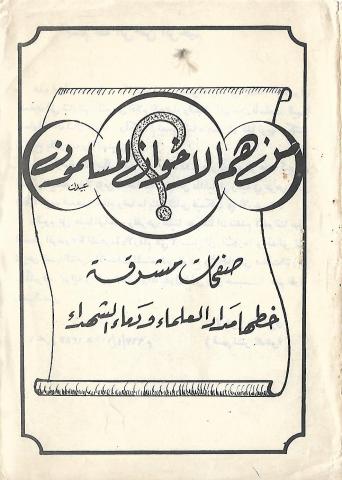 من هم الاخوان المسلمون
؟
صفحات مشرقة
خطها مداد العلماء ودماء الشهداء